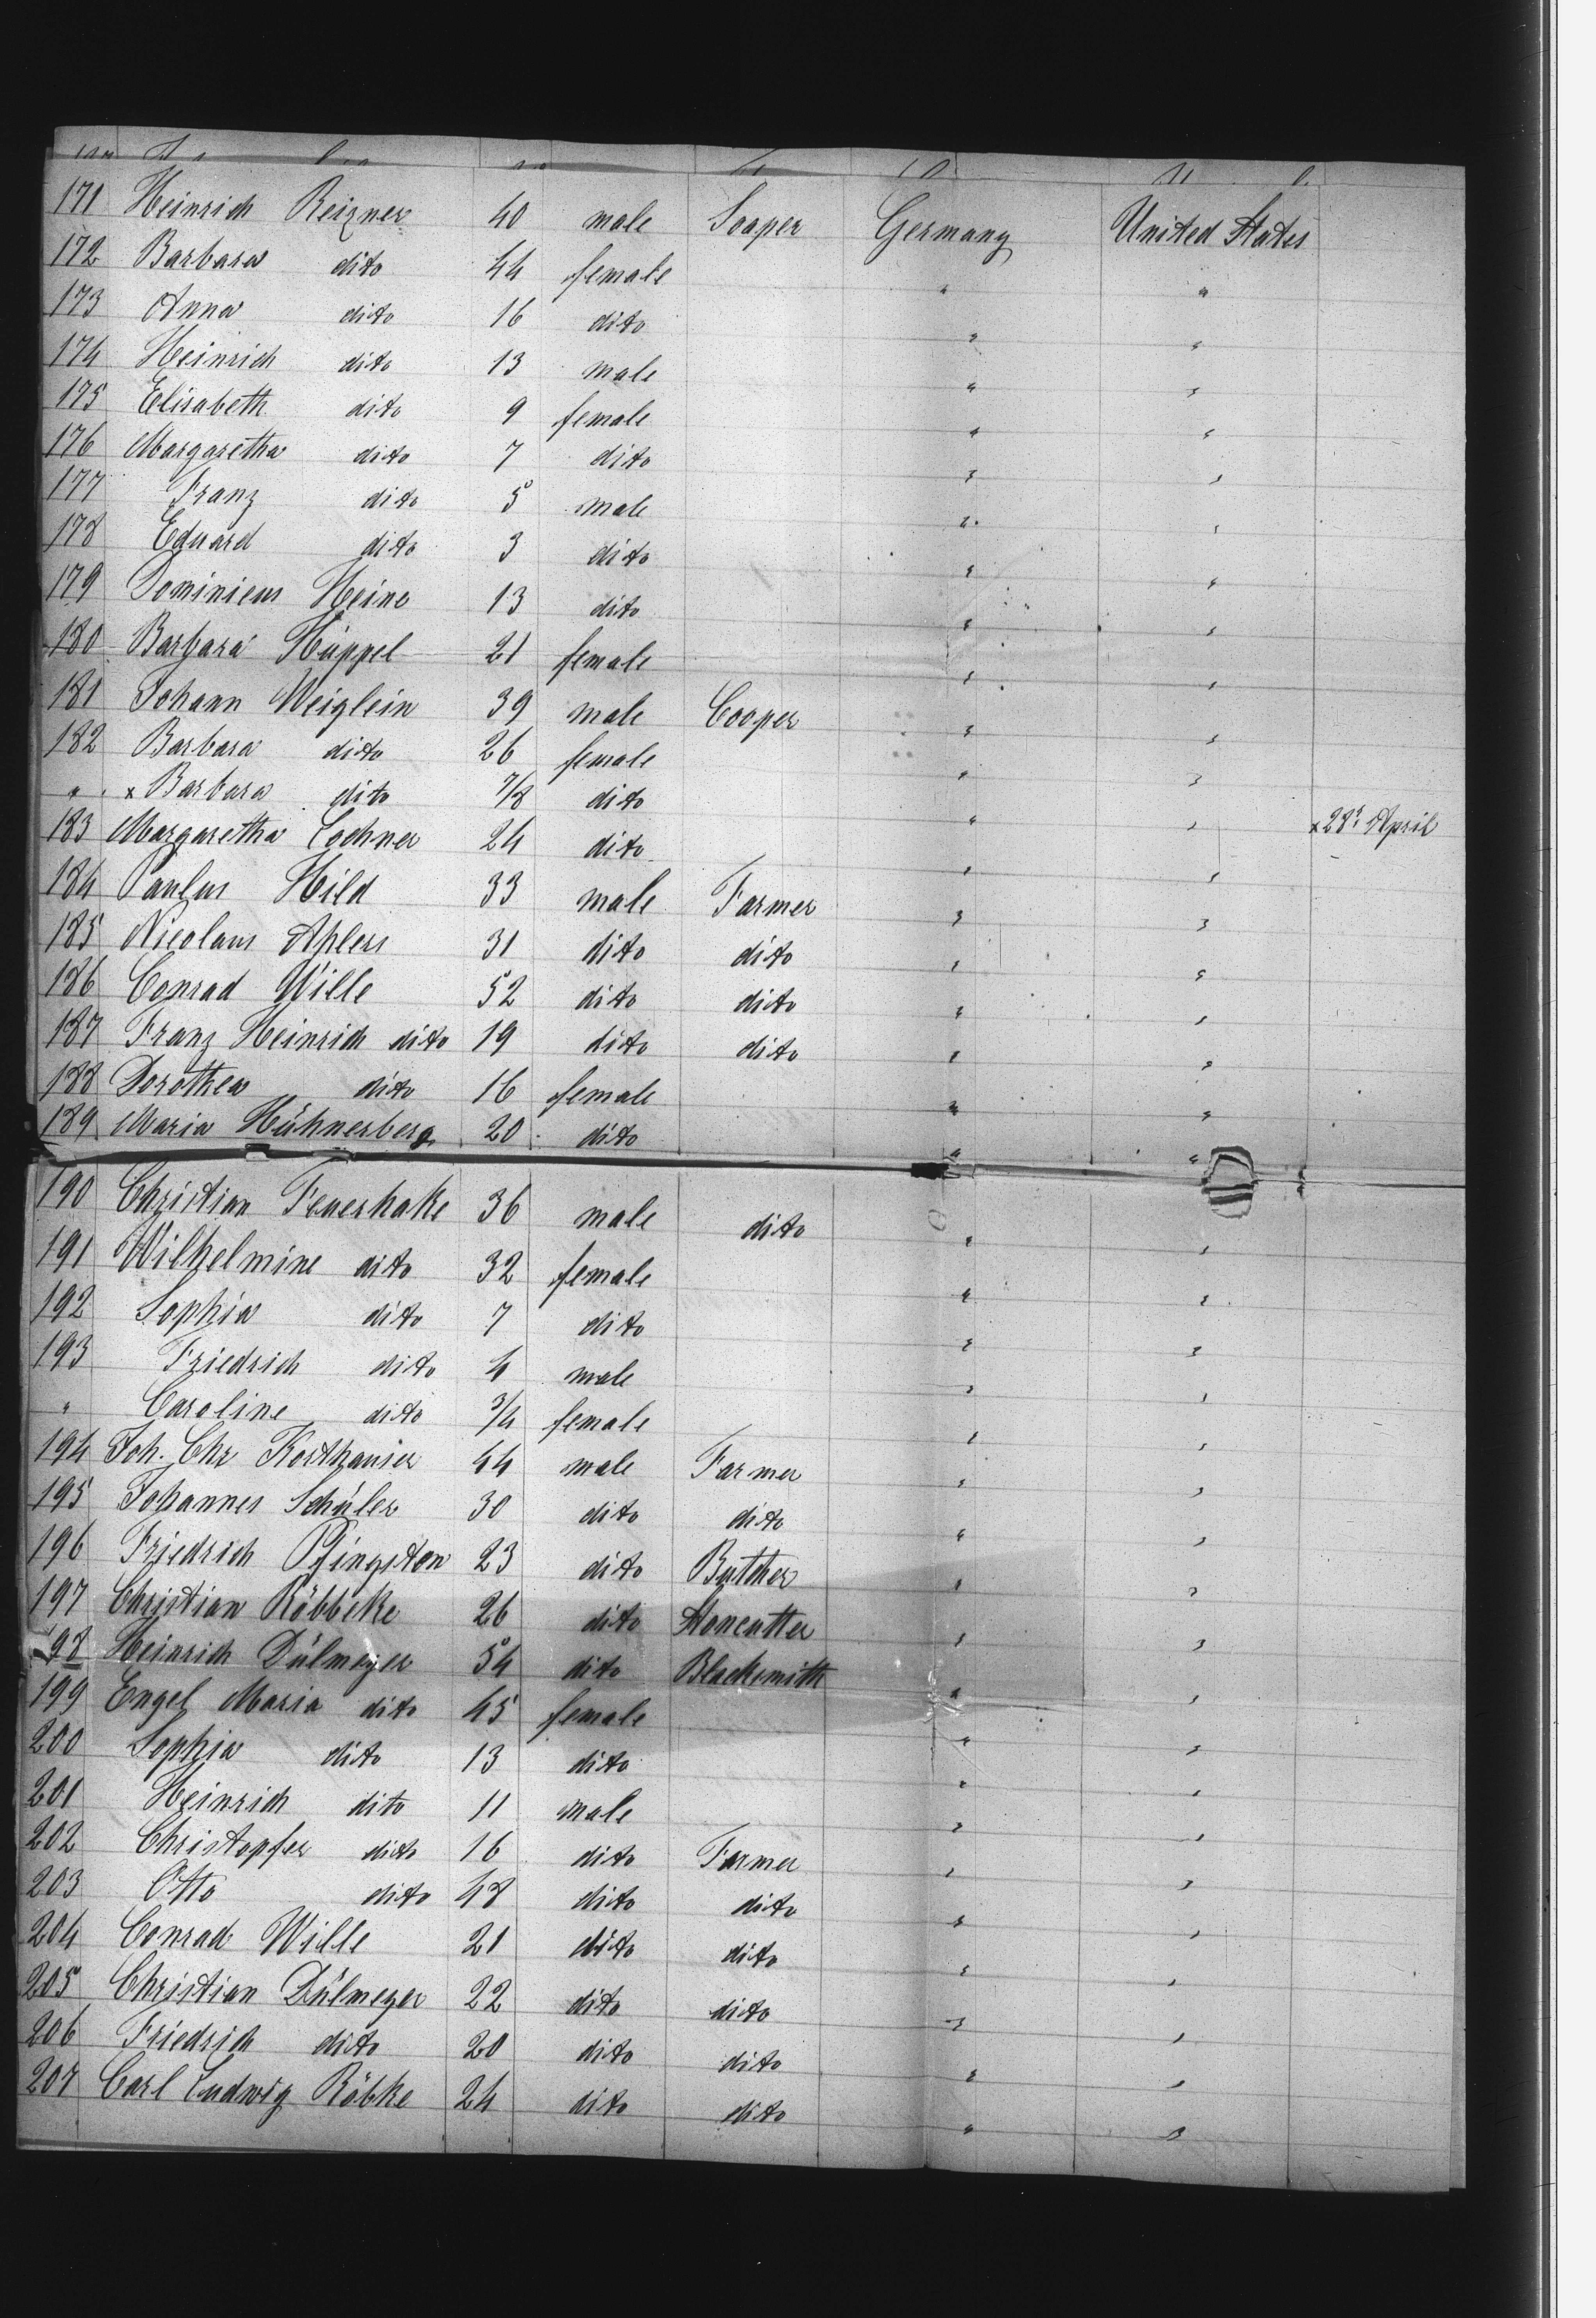 171 Heinrich Reizner 40 male Soaper Germany United States
172 Barbara dito 44 female " "
173 Anna dito 16 dito " "
174 Heinrich dito 13 male " "
175 Elisabeth dito 9 female " "
176 Margaretha dito 7 dito " "
177 Franz dito 5 male " "
178 Eduard dito 3 dito " "
179 Dominicus Heine 13 dito " "
180 Barbara Hüppel 21 female " "
181 Johann Weiglein 39 male Cooper " "
182 Barbara dito 26 female " "
" x Barbara dito 7/8 dito " " x 28r April
183 Margaretha Lochner 24 dito " "
184 Paulus Hild 33 male Farmer " "
185 Nicolaus Ahlers 31 dito dito " "
186 Conrad Wille 52 dito dito " "
187 Franz Heinrich dito 19 dito dito " "
188 Dorothea dito 16 female " "
189 Maria Hühnerberg 20 dito " "
190 Christian Feuerhake 36 male dito " "
191 Wilhelmine dito 32 female " "
192 Sophia dito 7 dito " "
193 Friedrich dito 4 male " "
" Caroline dito 3/4 female " "
194 Joh. Chr Korthauser 44 male Farmer " "
195 Johannes Schüler 30 dito dito " "
196 Friedrich Pfingsten 23 dito Butcher " "
197 Christian Röbbeke 26 dito Stoncutter " "
198 Heinrich Dülmeyer 54 dito Blacksmith " "
199 Engel Maria dito 45 female " "
200 Sophia dito 13 dito " "
201 Heinrich dito 11 male " "
202 Christopfer dito 16 dito Farmer " "
203 Otto dito 48 dito dito " "
204 Conrad Wille 21 dito dito " "
205 Christian Dülmeyer 22 dito dito " "
206 Friedrich dito 20 dito dito " "
207 Carl Ludwig Röbke 24 dito dito " "